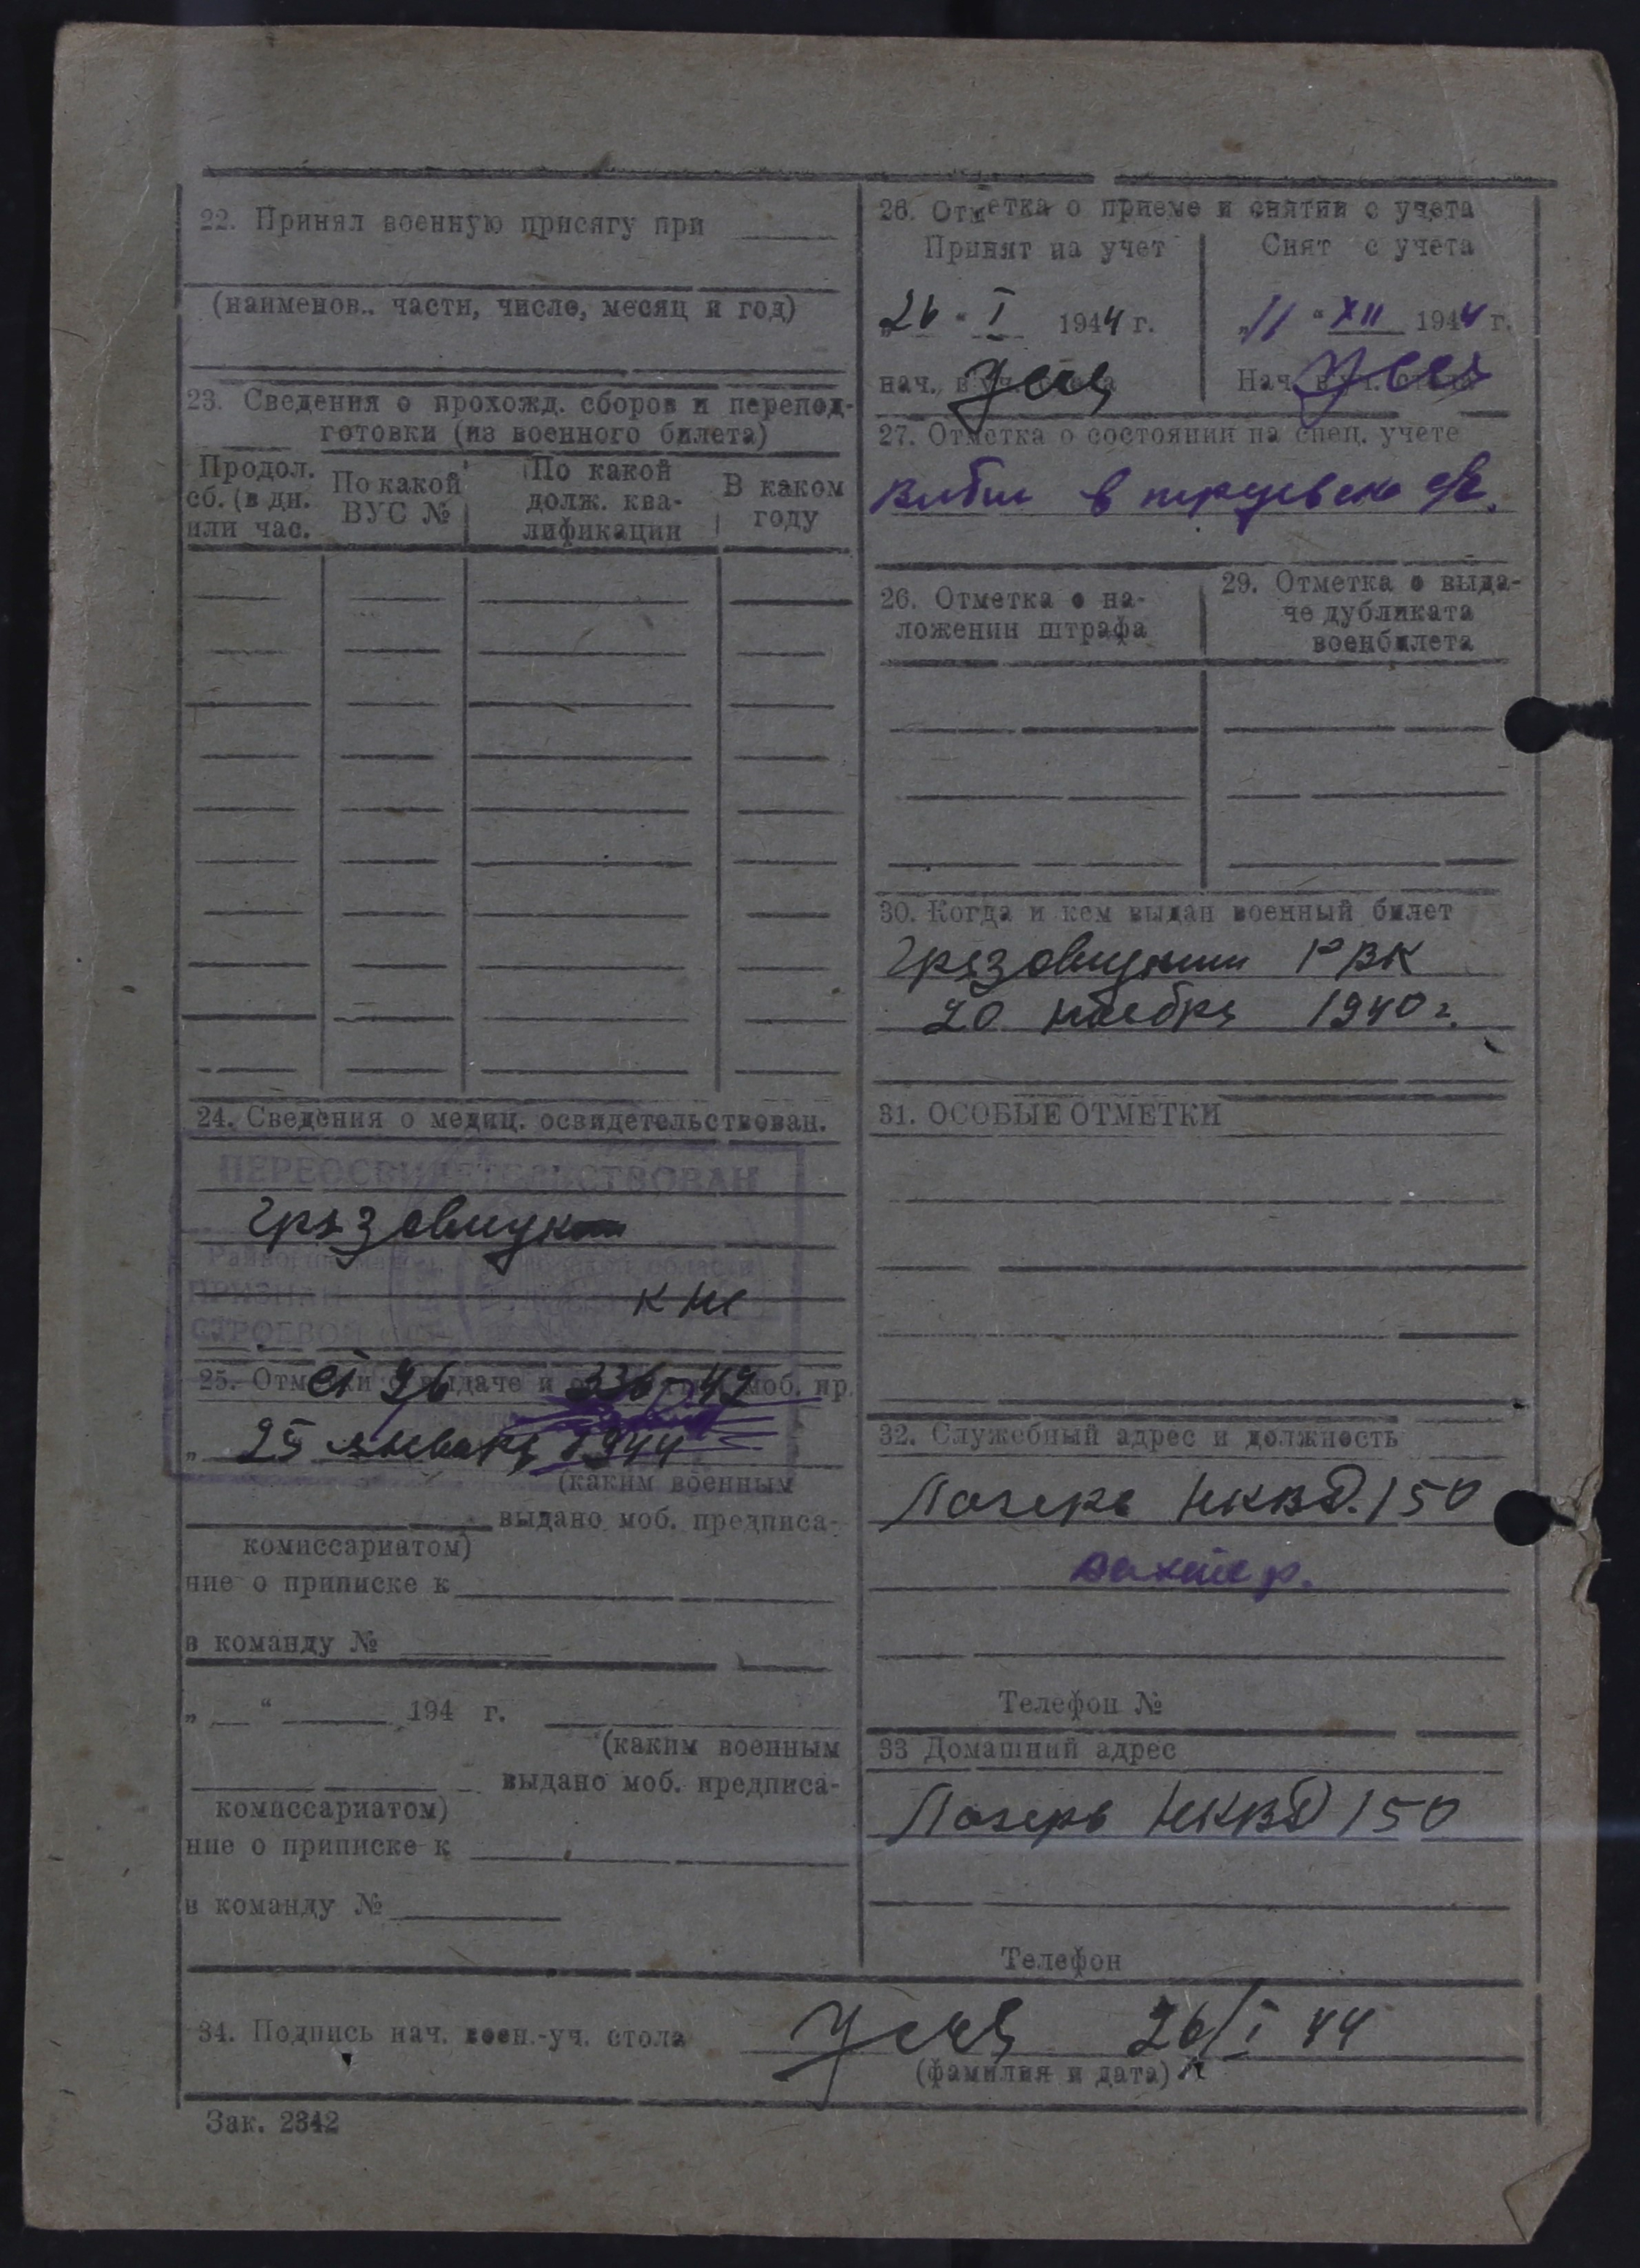 22. Принял военную присягу при
(наименов.. части, число, месяц и год)
23. Сведения о прохожд. сборов и перепод-
готовки (из военного билета)
Продол. сб. (в дн. или час.
По какой ВУС №
По какой долж. ква-лификации
В каком году
24. Сведения о медиц. освидетельствован.
ПЕРЕОСВИДЕТЕЛЬСТВОВАН
Грязовицк
ПРИЗНАН
к не
СТРОЕВОЙ
25. Отметки о выдаче и моб. пр.
ст 96 336-42
„ 25 января 1944
(каким военным
выдано моб. предписа-
комиссариатом)
ние о приписке к
в команду №
„ “ 194 г.
(каким военным
выдано моб. предписа-
комиссариатом)
ние о приписке к
в команду №
26. Отметка о приеме и снятии с учета
Принят на учет
Снят с учета
„26 “ I 1944 г.
„11 “ XII 1944 г.
нач.
Нач.
27. Отметка о состоянии на спец. учете
Выбыл в
26. Отметка о на-
ложении штрафа
29. Отметка о выда-
че дубликата
военбилета
30. Когда и кем выдан военный билет
Грязовицким РВК
20 ноября 1940 г.
31. ОСОБЫЕ ОТМЕТКИ
32. Служебный адрес и должность
Лагерь НКВД. 150
вахтер.
Телефон №
33 Домашний адрес
Лагерь НКВД 150
Телефон
34. Подпись нач. воен.-уч. стола 26/I 44
(фамилия и дата)
Зак. 2342